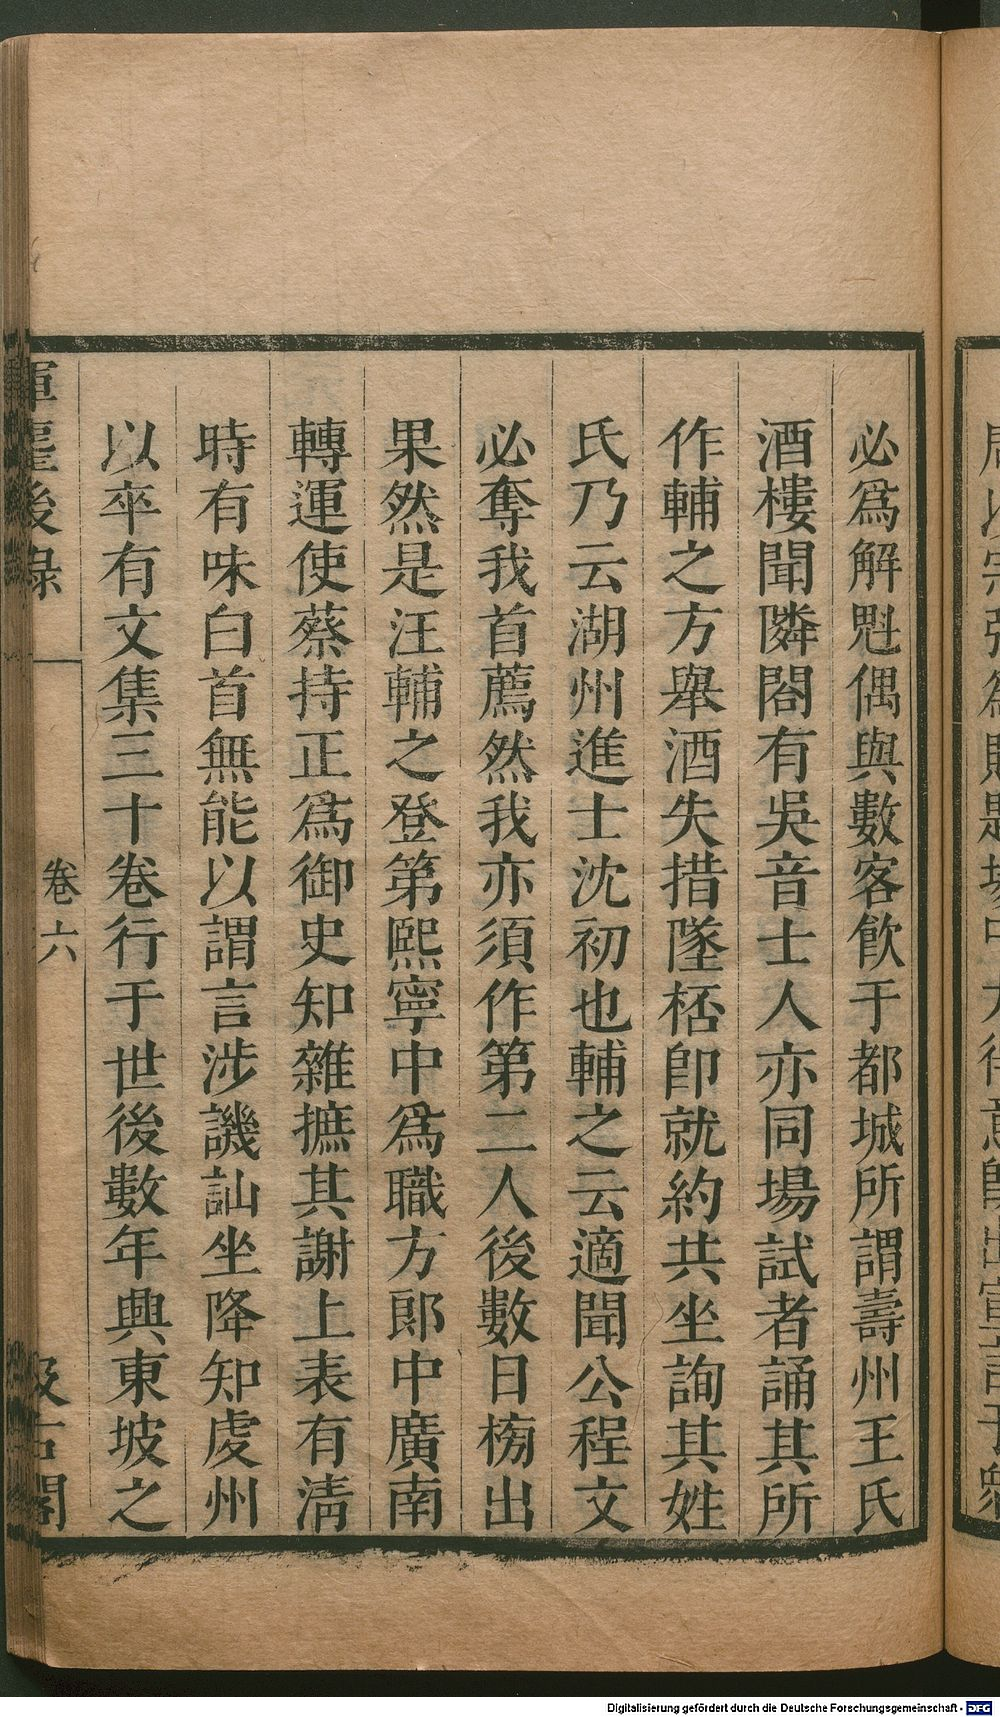 必為解魁偶與數客飲于都城所謂壽州王氏
酒樓聞隣閤有吳音士人亦同場試者誦其所
作輔之方舉酒失措墜桮卽就約共坐詢其姓
氏乃云湖州進士沈初也輔之云適聞公程文
必奪我首薦然我亦須作第二人後數日榜出
果然是汪輔之登第熙寧中為職方郎中廣南
轉運使蔡持正為御史知雜摭其謝上表有清
時有味白首無能以謂言涉譏訕坐降知虔州
以卒有文集三十卷行于世後數年興東坡之
揮麈後錄
卷六
汲古閣
Digitalisierung gefördert durch die Deutsche Forschungsgemeinschaft - DFG